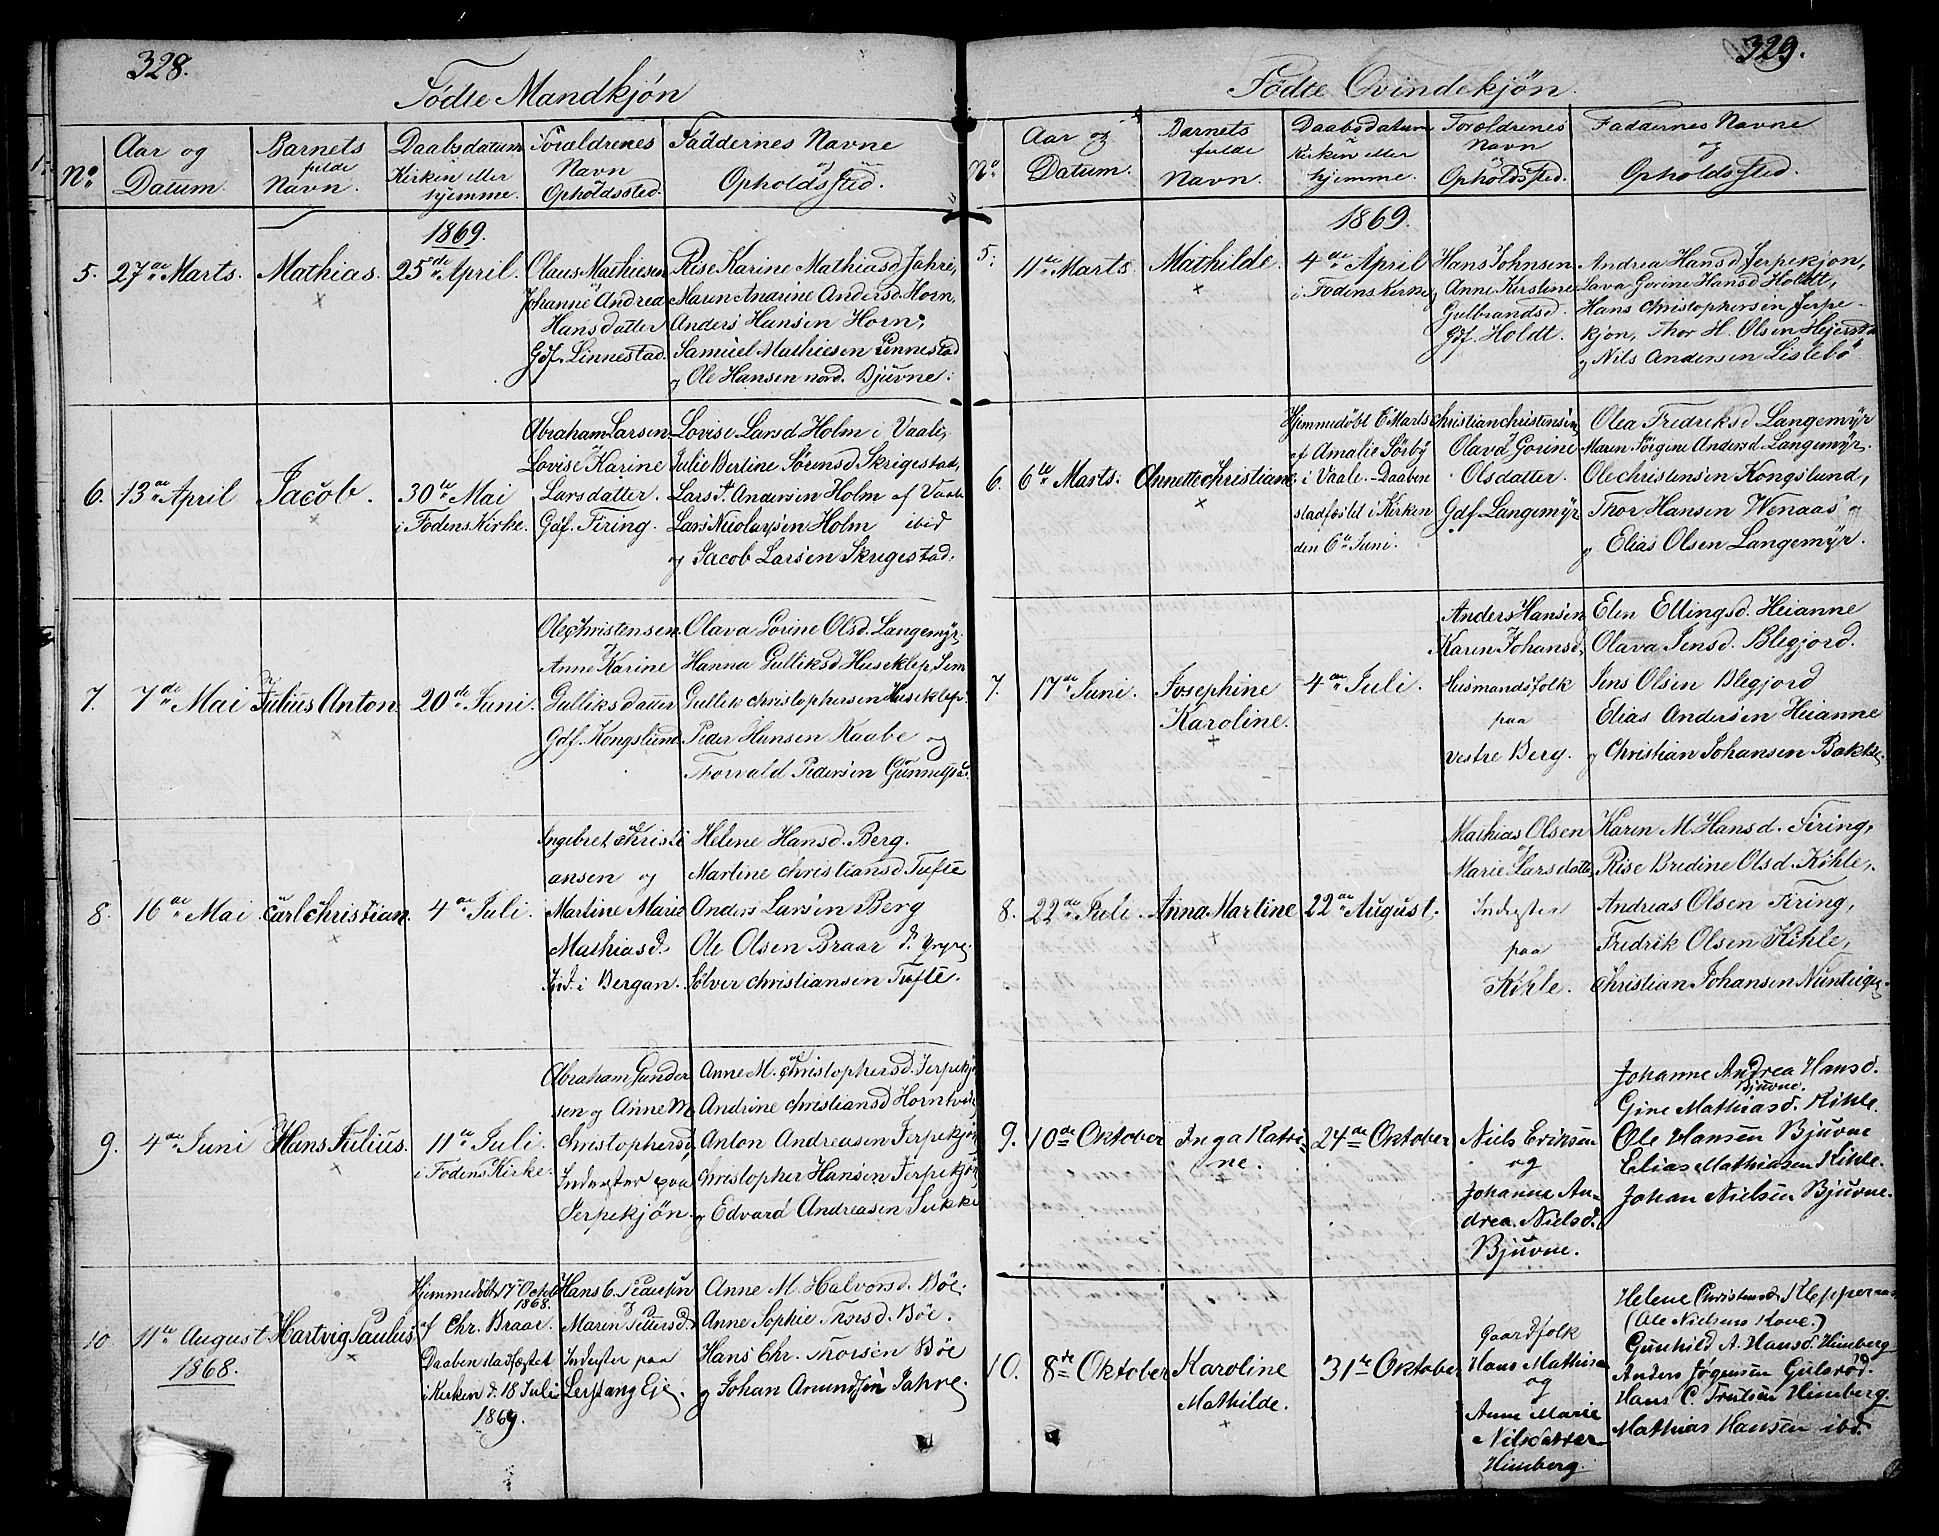 328.
Fødte Mandkjøn
No.
Aar og
Datum.
Barnets
fulde
Navn.
Daabsdatum
Kirken eller
hjemme.
Foraldrenes
Navn
Opholdssted.
Faddernes Navne
og
Opholdssted.
1869.
5.
27de Marts.
Mathias.
25de April.
Olaus Mathiesen
Johanne Andrea
Hansdatter
Gdf. Linnestad.
Rise Karine Mathiasd. Jahre,
Maren Anarine Andersd. Horn,
Anders Hansen Horn,
Samuel Mathiesen Linnestad
og Ole Hansen nord. Bjuvne.
6.
13de April
Jacob.
30te Mai
i Fodens Kirke.
Abraham Larsen
Lovise Karine
Larsdatter.
Gdf. Firing.
Lovise Larsd Holm i Vaale,
Julie Bertine Sørensd Skrigestad,
Lars A. Andersen Holm af Vaale
Lars Nicolaysen Holm ibid
og Jacob Larsen Skrigestad.
7.
7de Mai
Julius Anton.
20de Juni.
Ole Christensen
Anne Karine
Gulliksdatter
Gdf. Kongslund.
Olava Gorine Olsd. Langemÿr,
Hanna Gulliksd Huseklep Sem
Gullik Christophersen Huseklep.
Peder Hansen Raabe og
Thorvald Pedersen
8.
16de Mai
Carl Christian.
4de Juli.
Ingebret Christi
ansen og
Martine Marie
Mathiasd.
Ind. i Bergan.
Helene Hansd. Berg.
Martine Christiansd Tufte
Anders Larsen Berg
Ole Olsen Braar
Sølver Christiansen Tufte.
9.
4de Juni
Hans Julius.
11te Juli.
i Fodens Kirke.
Abraham Gunder
sen og Anne M.
Christophersd.
Inderster paa
Jerpekjøn.
Anne M. Christophersd. Jerpekjøn
Andrine Christiansd Horntvedt
Anton Andreasen Jerpekjøn
Christopher Hansen Jerpekjøn
og Edvard Andreasen Sukke
10.
11te August
1868.
Hartvig Paulus
Hjemmedøbt 17 Octob
1868.
af Chr. Braar.
Daaben stadfæstet
i Kirken d. 18 Juli
1869.
Hans C.
Maren Pettersd.
Inderster paa
Lerstang Eje.
Anne M. Halvorsd. Bøe.
Anne Sophie Thorsd. Bøe.
Hans Chr. Thorsen Bøe
og Johan Amundsen Jahre.
329.
Fødte Qvindekjøn.
No.
Aar og
Datum.
Barnets
fulde
Navn.
Daabsdatum
i
Kirken eller
hjemme.
Foraldrenes
Navn
og
Opholdssted.
Faddernes Navne
og
Opholdssted.
1869.
5.
11te Marts.
Mathilde.
4de April
i Fodens Kirke
Hans Johnsen
og Anne Kirstine
Gulbrandsd.
Gdf. Holdt.
Andrea Hansd Jerpekjon,
Lava Gorine Hansd Holdt,
Hans Christophersen Jerpe-
kjon, Thor H. Olsen
og Nils Andersen Listebö
6.
6te Marts.
Annette Christiane
Hjemmedøbt 6 Marts
af Amalie Søsby
i Vaale. - Daaben
stadfæstet i Kirken
den 6te Juni.
Christian Christensen
Olava Gorine
Olsdatter.
Gdf. Langemÿr
Olea Fredriksd Langemÿr
Maren Jörgine Andersd. Langemÿr.
Ole Christensen Kongslund,
Thor Hansen Wenaas
og Elias Olsen Langemÿr.
7.
17de Juni.
Josephine
Karoline.
4de Juli.
Anders Hansen
Karen Johansd,
Huusmandsfolk
paa
vestre Berg.
Elen Ellingsd. Heianne
Olava Jensd. Blegjord.
Jens Olsen Blegjord
Elias Andersen Heianne
og Christian Johansen Bakke.
8.
22de Juli.
Anna Martine
22de August.
Mathias Olsen
og
Marie Larsdatter
Inderster
paa
Kihle.
Karen M. Hansd. Firing,
Rise Bredine Olsd. Kihle,
Andreas Olsen Firing,
Fredrik Olsen Kihle,
Christian Johansen
9.
10de Oktober
Inga Katri-
ne.
24de Oktober
Niels Eriksen
og
Johanne An-
drea. Nielsd.
Bjuvne.
Johanne Andrea Hansd.
Bjuvne.
Gine Mathiasd. Kihle.
Ole Hansen Bjuvne
Elias Mathiasen Kihle.
Johan Nielsen Bjuvne.
10.
8de Oktober
Karoline
Mathilde.
31te Oktober
Gaardfolk
Hans Mathisen
og
Anne Marie
Nilsdatter
Himberg.
Helene Christensd.
(Ole Nielsens Kone.)
Gunhild A. Hansd. Himberg
Anders Jørgensen Gulsrød.
Hans C. Trulsen Himberg.
Mathias Hansen ibd.